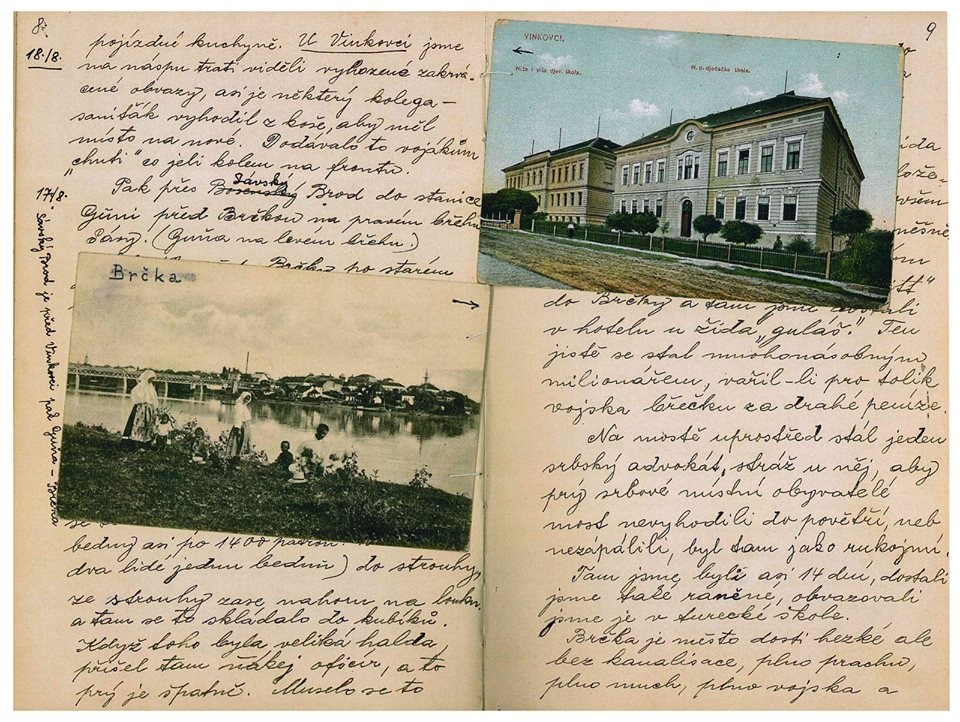 8.
18./8.
pojízdné kuchyně. U Vinkovcí jsme
na náspu trati viděli vyhozené zakrvá-
cené obvazy, asi je některý kolega-
saniťák vyhodil z koše, aby měl
místo na nové. Dodávalo to vojákům
„chuti" co jeli kolem na frontu.
17/8.
Pak přes Bosenský Sávský Brod do stanice
Gůni před Brčkou na pravém břehu
Sávy. (Guňa na levém břehu)
Brčko po starém
Sávský Brod je před Vinkovci pak Guňa - Brčka
Brčka
bedny asi po 1400 patron.
dva lidé jednu bednu) do strouhy,
ze strouhy zase nahoru na louku
a tam se to skládalo do kubíků.
Když toho byla veliká halda,
přišel tam ňákej oficír, a to
prý je špatně. Muselo se to
9
VINKOVCI.
Niža i viša djev. škola.
N. p. dječačka škola.
do Brčky a tam jsme dostali
v hotelu u žida „guláš". Ten
jistě se stal mnohonásobným
milionářem, vařil-li pro tolik
vojska břečku za drahé peníze.
Na mostě uprostřed stál jeden
srbský advokát, stráž u něj, aby
prý srbové místní obyvatelé
most nevyhodili do povětří, neb
nezápálili, byl tam jako rukojmí.
Tam jsme byli asi 14 dní, dostali
jsme také raněné, obvazovali
jsme je v turecké škole.
Brčka je město dosti hezké ale
bez kanalisace, plno prachu,
plno much, plno vojska a